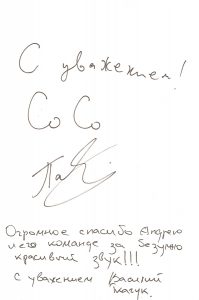 С уважением!
Со Со
Огромное спасибо Андрею
и его команде за безумно
красивый звук!!!
С уважением Василий